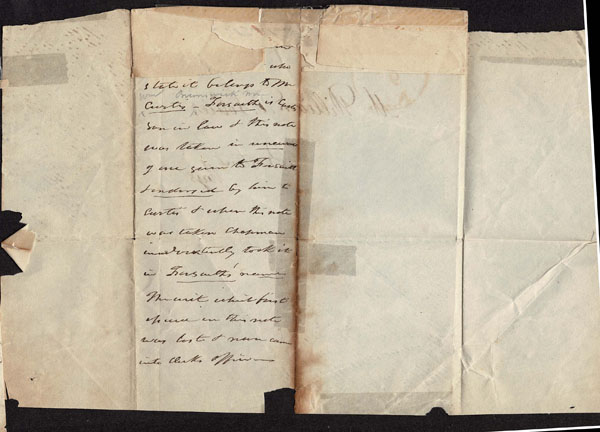 who
state it belongs to Mr
Curtis - Forsaith is
son in law & this note
was taken in
of one given to Forsaith
& endorsed by him to
Curtis & when this note
was taken Chapman
inadvertently took it
in Forsaith's name
The writ which first
issued in this note
was lost & never came
into Clerks office